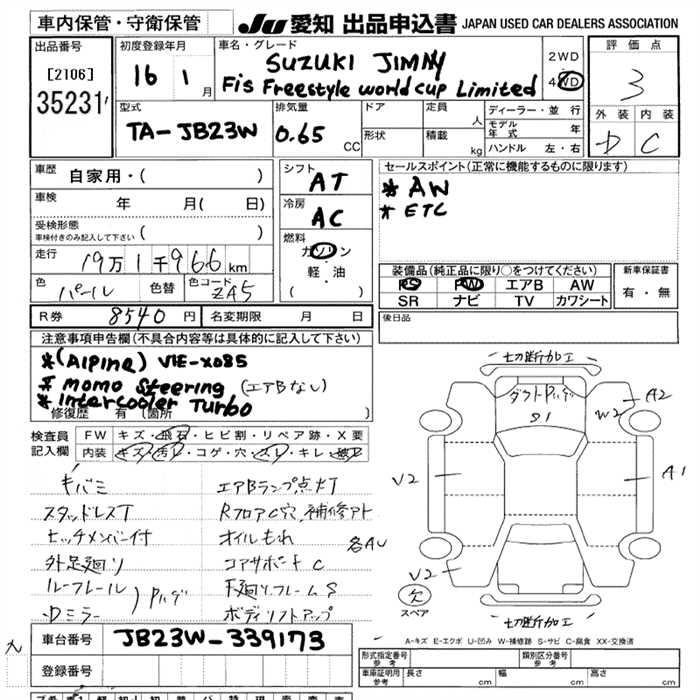 車内保管・守衛保管
JU 愛知 出品申込書 JAPAN USED CAR DEALERS ASSOCIATION
出品番号
[2106]
35231
初度登録年月
16 1月
車名・グレード
SUZUKI JIMNY
Fis Freestyle world cup Limited
2WD
4WD
評価点
3
外装 内装
D C
型式
TA-JB23W
排気量
0.65 CC
ドア
形状
定員 人
積載 kg
ディーラー・並行
モデル年式 年
ハンドル 左・右
車歴 自家用・( )
車検 年 月( 日)
受検形態
車検付きのみ記入して下さい ( )
走行 19万1千966km
色 パール 色替 色コード ZA5
シフト AT
冷房 AC
燃料
ガソリン
軽・油
( )
セールスポイント(正常に機能するものに限ります)
* AW
* ETC
装備品(純正品に限り○をつけてください)
PS PW エアB AW
SR ナビ TV カワシート
新車保証書
有・無
後日品
R券 8540円 名変期限 月 日
注意事項申告欄(不具合内容等は具体的に記入して下さい)
*(Alpine) VIE-X085
* MOMO Steering (エアBなし)
* Intercooler Turbo
修復歴 有 [箇所 ]
検査員記入欄
FW キズ・飛石・ヒビ割・リペア跡・X要
内装 キズ・汚レ・コゲ・穴・スレ・キレ・破レ
キバミ エアBランプ点灯
スタッドレスT RフロアC穴、補修アト
ヒッチメンバー付 オイルもれ
外足廻り コアサポートC
ルーフレール 下廻りフレームS
Dミラー ボディリフトアップ
各AU
切断加工
S1
A2
W2
V2
A1
V2
欠
スペア
切断加工
A-キズ E-エクボ U-凹み W-補修跡 S-サビ C-腐食 XX-交換済
車台番号 JB23W-339173
登録番号
形式指定番号 参考
類別区分番号 参考
車庫証明用 参考 長さ cm 幅 cm 高さ cm